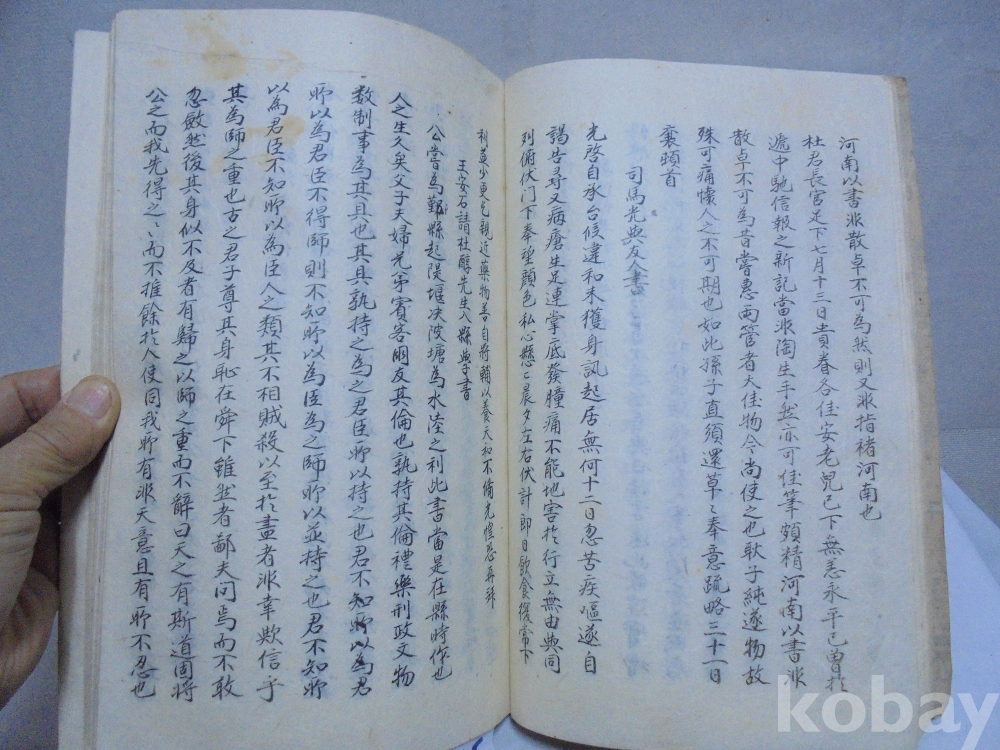 河南以書非散卓不可為然則又非指褚河南也
杜君長官足下七月十三日貴眷各佳安老兒已下無恙永平已曾於
遞中馳信報之新記當非陶生手然亦可佳筆頗精河南以書非
散卓不可為昔嘗惠兩管者大佳物今尚使之也耿子純遂物故
殊可痛懷人之不可期也如此孫子直須還草〻奉意疏略三十一日
襄頓首
司馬光與友人書
光啓自承台候違和未獲身訊起居無何十二日忽苦疾嘔遂自
謁告尋又病瘡生足連掌底發腫痛不能地害於行立無由與同
列俯伏門下奉望顏色私心懸〻晨夕左右伏計即日飲食復常下
利益少更乞親近藥物善自將輔以養天和不備光惶恐再拜
王安石請杜醇先生入縣學書
公嘗為鄞縣起隄堰決陂塘為水陸之利此書當是在縣時作也
人之生久矣父子夫婦兄弟賓客朋友其倫也孰持其倫禮樂刑政文物
数制事為其具也其具孰持之為之君臣所以持之也君不知所以為君
所以為君臣不得師則不知所以為臣為之師所以並持之也君不知所
以為君臣不知所以為臣人之類其不相賊殺以至於盡者非幸歟信乎
其為師之重也古之君子尊其身恥在舜下雖然者鄙夫問焉而不敢
忽斂然後其身似不及者有歸之以師之重而不辭曰天之有斯道固將
公之而我先得之〻而不推餘於人使同我所有非天意且有所不忍也
kobay